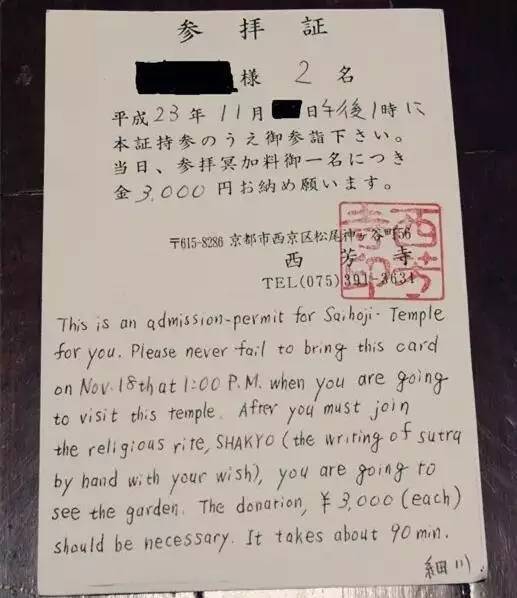 参拝証
様 2名
平成23年11月 日午後1時に
本証持参のうえ御参詣下さい。
当日、参拝冥加料御一名につき
金3,000円お納め願います。
〒615-8286 京都市西京区松尾神ヶ谷町56
西芳寺
TEL(075)391-3631
西芳寺印
This is an admission-permit for Saihoji-Temple
for you. Please never fail to bring this card
on Nov. 18th at 1:00 P.M. when you are going
to visit this temple. After you must join
the religious rite, SHAKYO (the writing of sutra
by hand with your wish), you are going to
see the garden. The donation, ¥3,000 (each)
should be necessary. It takes about 90 min.
細川